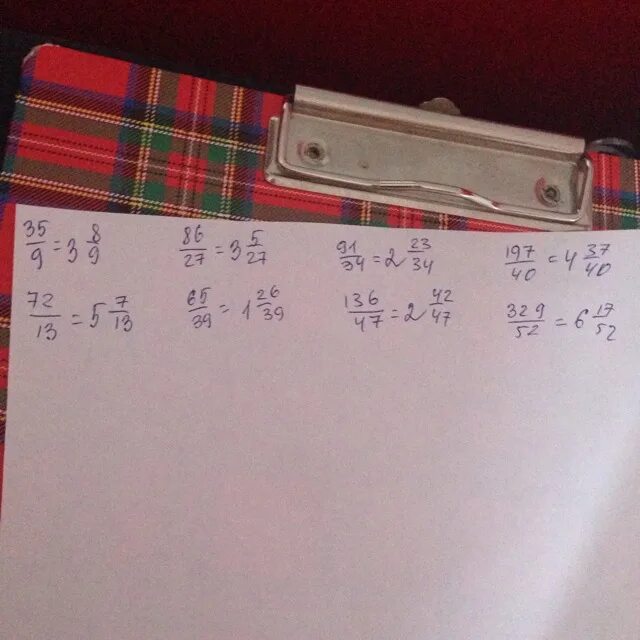 35/9 = 3 8/9   86/27 = 3 5/27   91/34 = 2 23/34   197/40 = 4 37/40
72/13 = 5 7/13   65/39 = 1 26/39   136/47 = 2 42/47   329/52 = 6 17/52